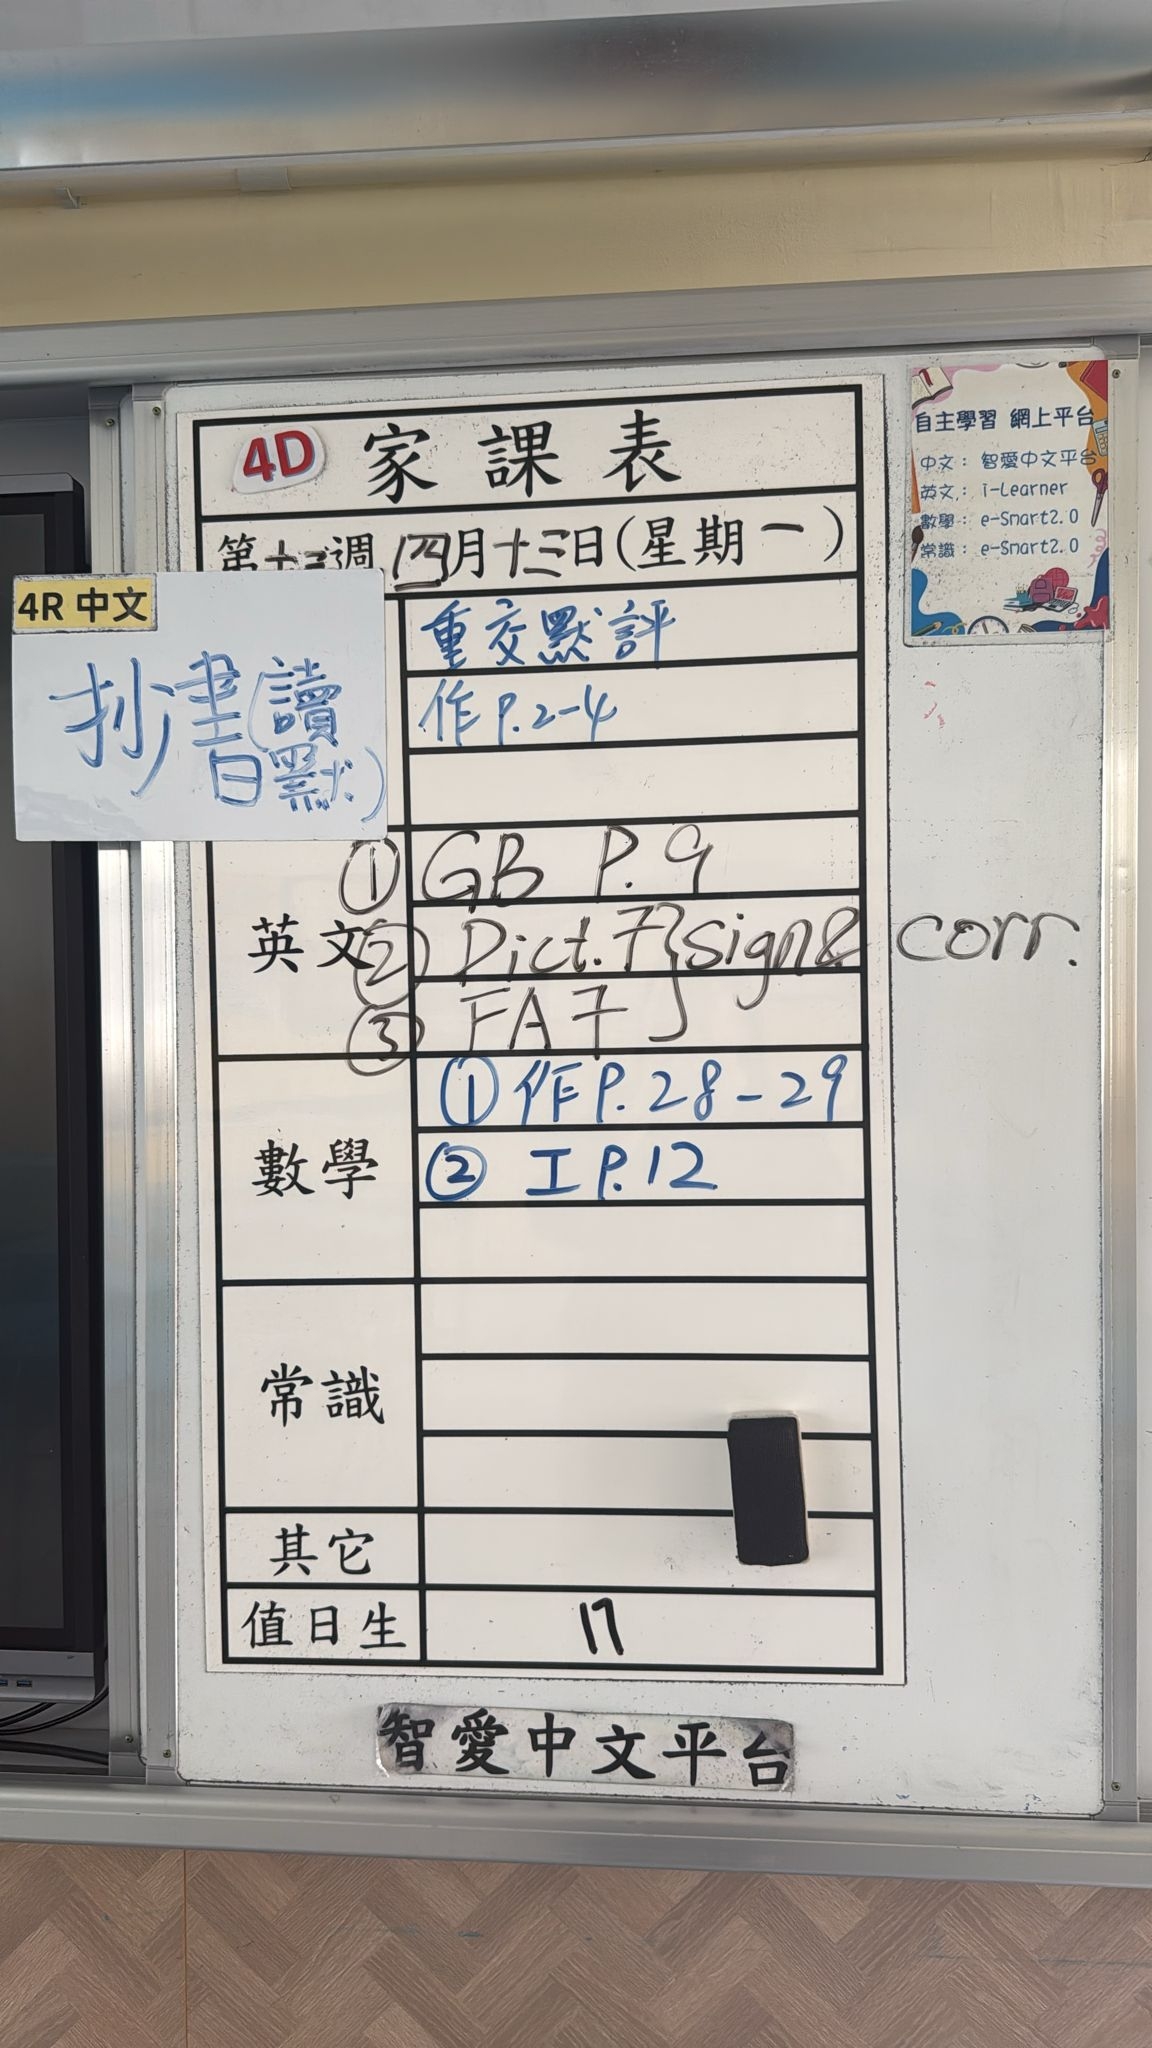 4D 家課表
第十三週 四月十三日(星期一)
4R 中文
抄書(讀
默)
重交默評
作P.2-4
英文
① GB P.9
② Dict.7 } sign & corr.
③ FA7
數學
① 作P.28-29
② 工P.12
常識
其它
值日生
17
智愛中文平台
自主學習 網上平台
中文: 智愛中文平台
英文: i-Learner
數學: e-Smart2.0
常識: e-Smart2.0